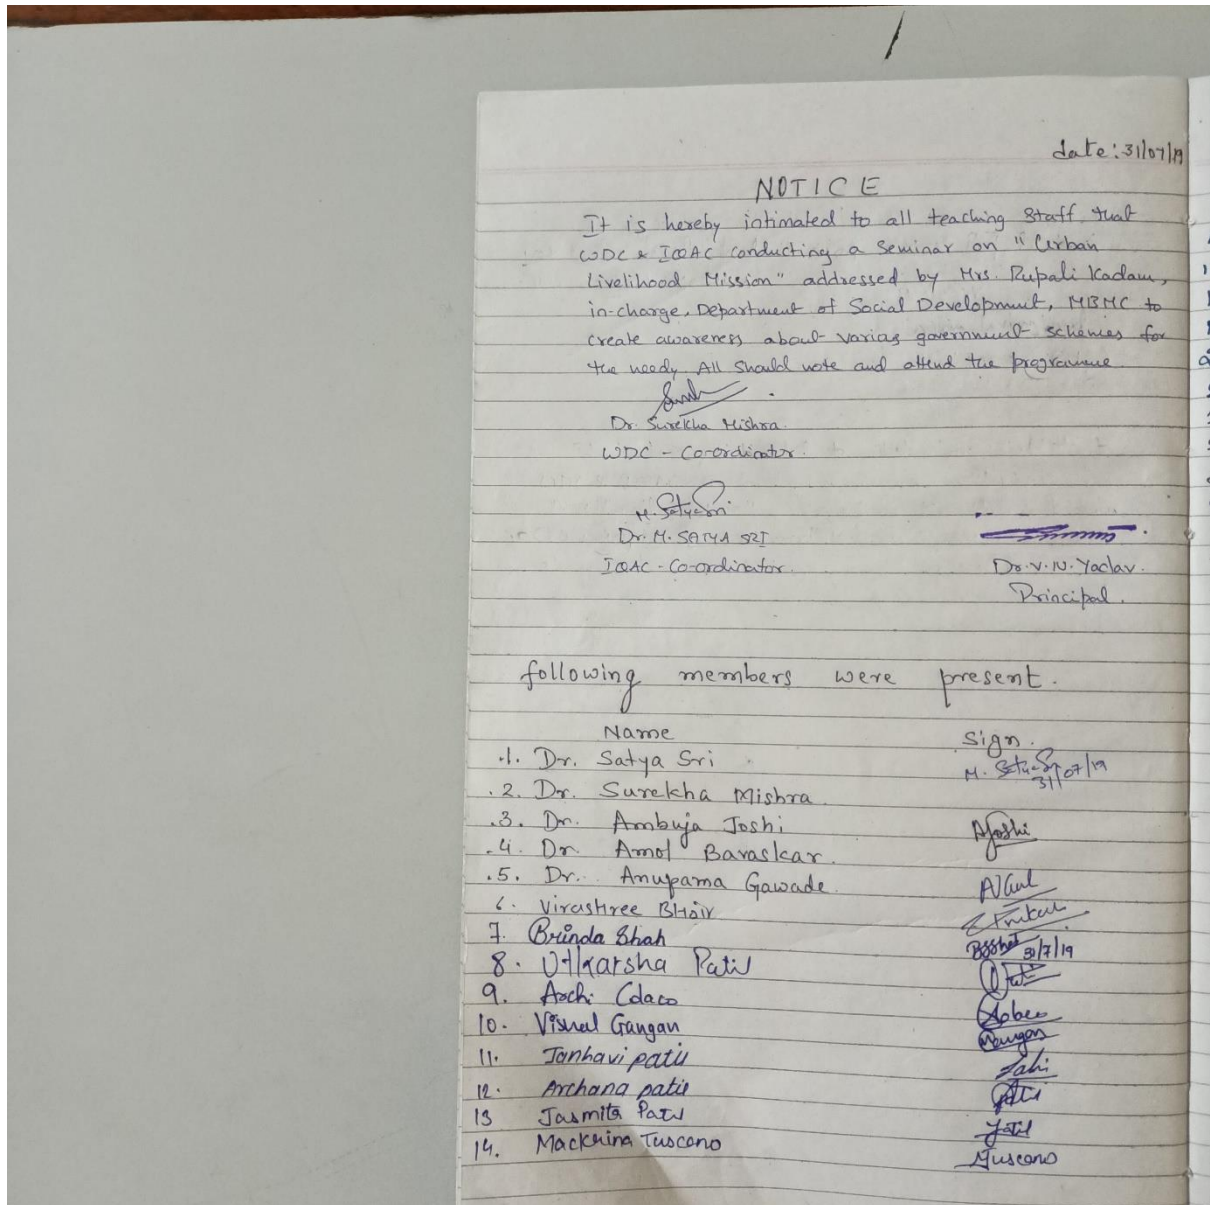 date: 31/07/19
NOTICE
It is hereby intimated to all teaching staff that
WDC & IQAC conducting a Seminar on "Urban
Livelihood Mission" addressed by Mrs. Rupali Kadam,
in-charge, Department of Social Development, MBMC to
create awareness about varias government schemes for
the needy. All should note and attend the programme.
Dr. Surekha Mishra.
WDC - Co-ordinator.
M. SatyaSri
Dr. M. SATYA SRI
IQAC - Co-ordinator.
Dr. V. N. Yadav.
Principal.
following members were present.
Name Sign.
1. Dr. Satya Sri M. SatyaSri 31/07/19
2. Dr. Surekha Mishra.
3. Dr. Ambuja Joshi AJoshi
4. Dr. Amol Bavaskar.
5. Dr. Anupama Gawade.
6. Virashree BHoir
7. Brinda Shah 31/7/19
8. Utkarsha Patil
9. Archi
10. Vishal Gangan
11. Janhavi patil
12. Archana patil
13 Jasmita Patil
14. Mackrina Tuscano Tuscano